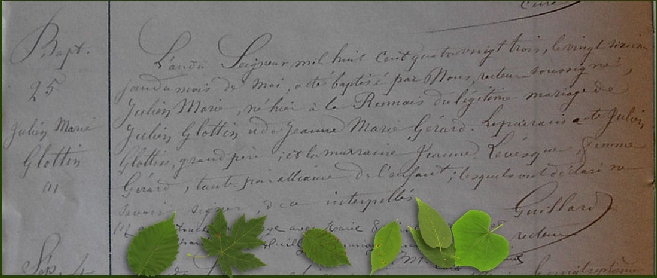 Curé
Bapt.
25
Julien Marie
Glottin
L'an du Seigneur mil huit cent quatre vingt trois, le vingt
jour du mois de Mai, a été baptisé par Nous, recteur soussigné,
Julien Marie, né hier à la Rumais du légitime mariage de
Julien Glottin et de Jeanne Marie Gérard. Le parrain a été Julien
Glottin, grand père; et la marraine Jeanne Levesque femme
Gérard, tante par alliance de l'enfant; lesquels ont déclaré ne
savoir signer, de ce interpellés
Guillard
recteur